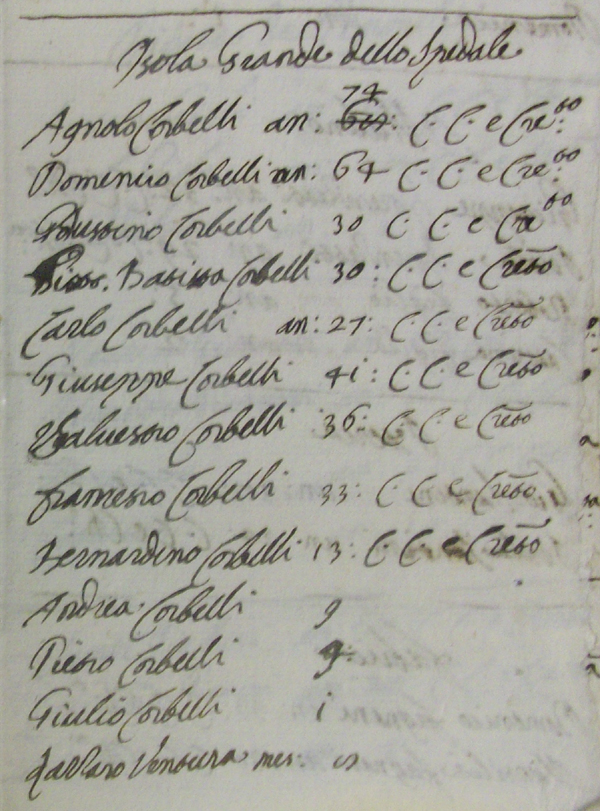 Isola Grande dello Spedale
74
Agnolo Corbelli an: 64: C. C. e Cre.mo
Domenico Corbelli an: 64 C. C. e Cre.mo
Corbelli 30 C. C. e Cre.mo
Corbelli 30: C. C. e Cresmo
Carlo Corbelli an: 27: C. C. e Cresmo
Giuseppe Corbelli 41: C. C. e Cresmo
Corbelli 36: C. C. e Cresmo
Francesco Corbelli 33: C. C. e Cresmo
Bernardino Corbelli 13: C. C. e Cresmo
Andrea Corbelli 9
Pietro Corbelli
Giulio Corbelli i
Ventura mes: